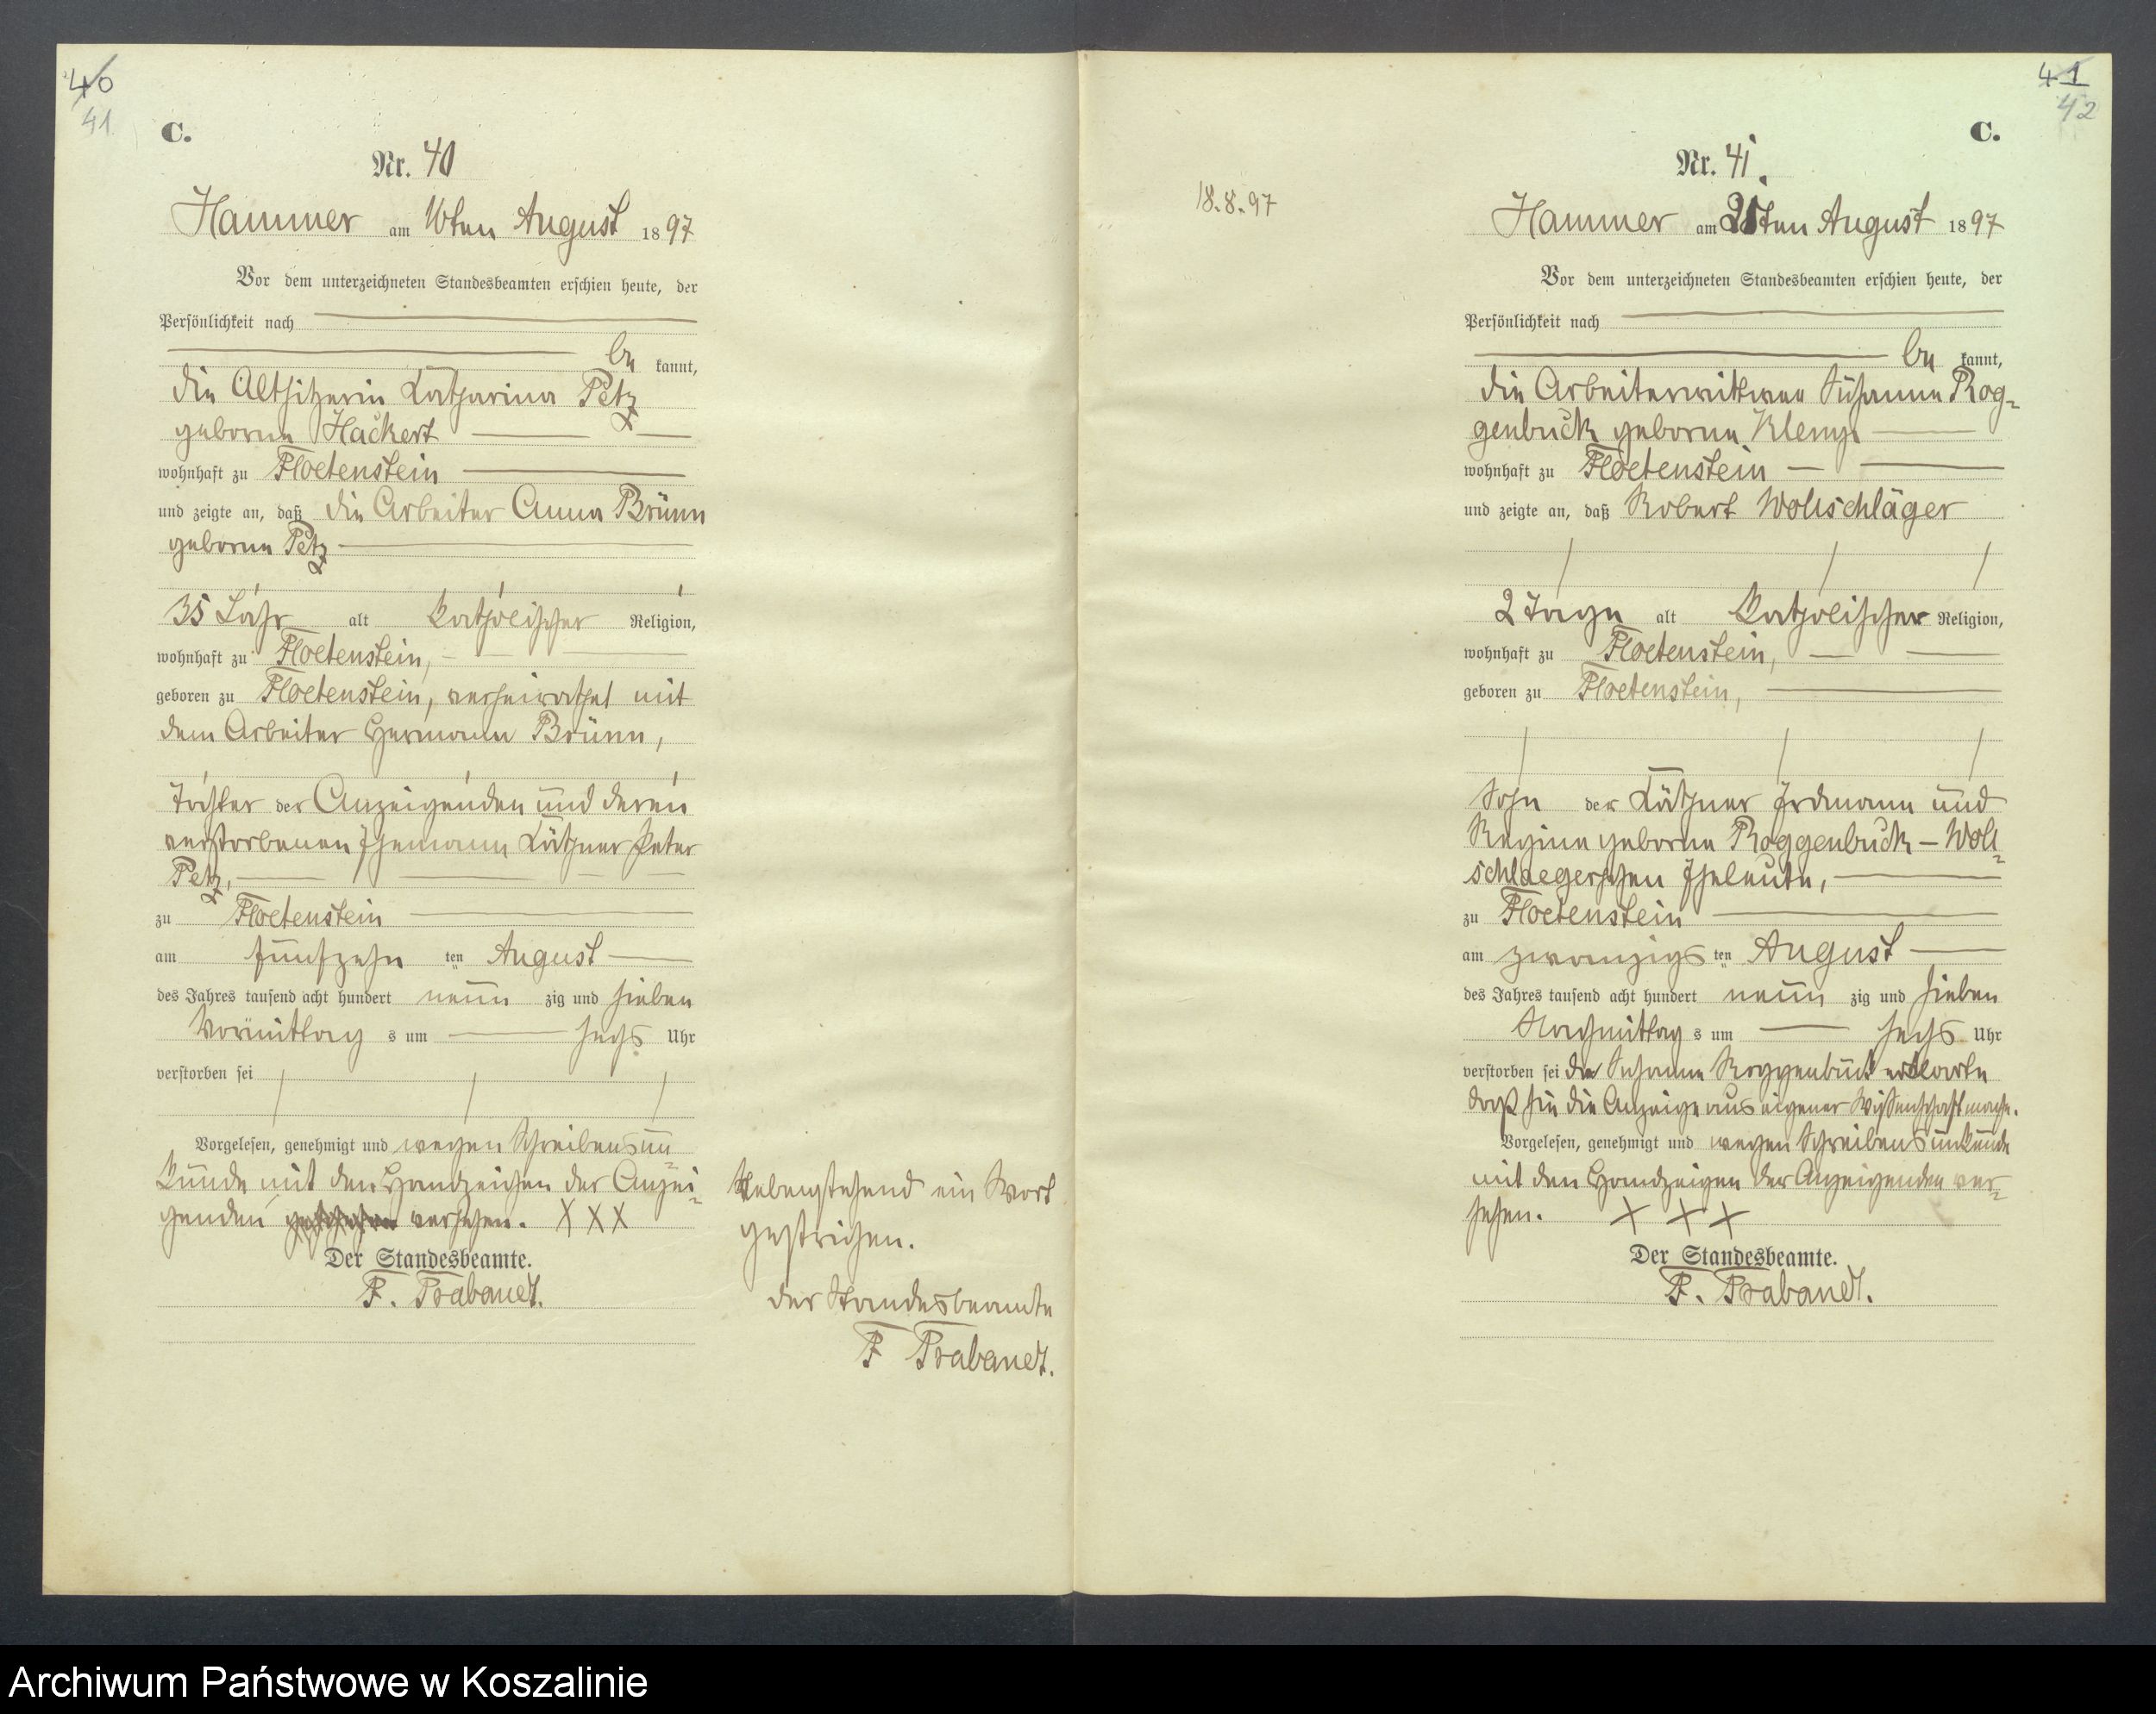 40
41
C.
Nr. 40
Hammer am 16ten August 1897
Vor dem unterzeichneten Standesbeamten erschien heute, der
Persönlichkeit nach
be kannt,
die Altsitzerin Katharina Petz
geborne Hackert
wohnhaft zu Floetenstein
und zeigte an, daß die Arbeiter Anna Brünn
geborne Petz
35 Jahr alt katholischer Religion,
wohnhaft zu Floetenstein,
geboren zu Floetenstein, verheirathet mit
dem Arbeiter Hermann Brünn,
Tochter der Anzeigenden und deren
verstorbenen Ehemann Käthner Peter
Petz,
zu Floetenstein
am fünfzehn ten August
des Jahres tausend acht hundert neun zig und sieben
Vormittag s um sechs Uhr
verstorben sei
Vorgelesen, genehmigt und wegen Schreibensun=
kunde mit den Handzeichen der Anzei=
genden versehen. X X X
Der Standesbeamte.
F. Trabandt.
Nebenstehend ein Wort
gestrichen.
der Standesbeamte
F Trabandt.
18.8.97
41
42
C.
Nr. 41.
Hammer am 21ten August 1897
Vor dem unterzeichneten Standesbeamten erschien heute, der
Persönlichkeit nach
be kannt,
die Arbeiterwittwe Susanne Rog=
genbuck geborne Klemp
wohnhaft zu Floetenstein
und zeigte an, daß Robert Wollschläger
2 Tage alt katholischer Religion,
wohnhaft zu Floetenstein,
geboren zu Floetenstein,
Sohn der Käthner Erdmann und
Regine geborne Roggenbuck – Woll=
schlaegerschen Eheleute,
zu Floetenstein
am zwanzigs ten August
des Jahres tausend acht hundert neun zig und sieben
Nachmittag s um sechs Uhr
verstorben sei die Susanne Roggenbuck erklärte
daß sie die Anzeige aus eigener Wissenschaft mache.
Vorgelesen, genehmigt und wegen Schreibensunkunde
mit den Handzeichen der Anzeigenden ver=
sehen. X X X
Der Standesbeamte.
F. Trabandt.
Archiwum Państwowe w Koszalinie